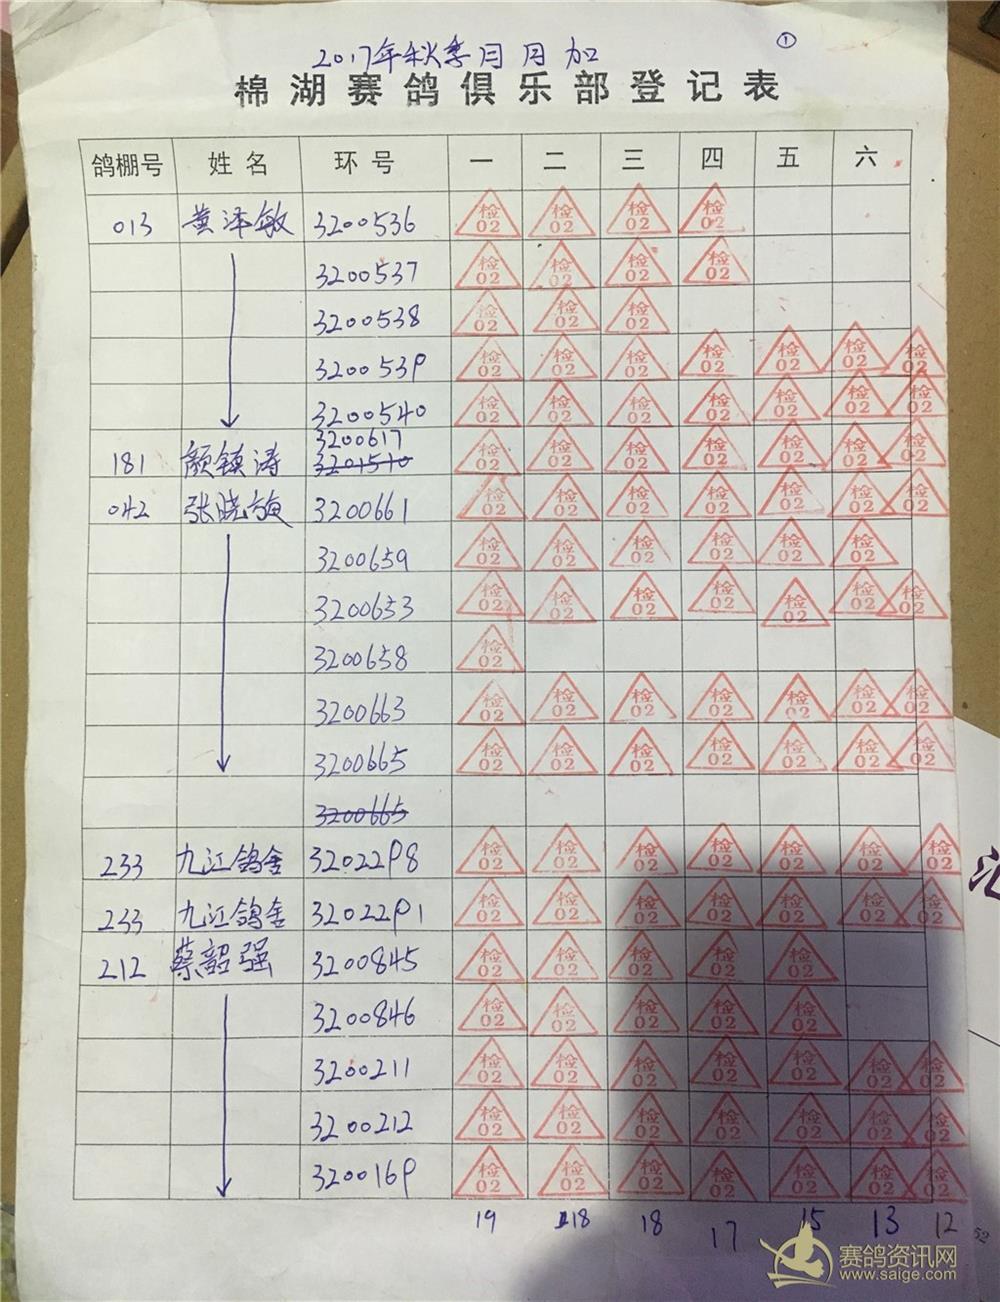 ①
2017年秋季月月加
棉湖赛鸽俱乐部登记表
鸽棚号 姓名 环号 一 二 三 四 五 六
013 黄泽敏 3200536 检02 检02 检02 检02
3200537 检02 检02 检02 检02
3200538 检02 检02 检02
3200539 检02 检02 检02 检02 检02 检02 检02
3200540 检02 检02 检02 检02 检02 检02 检02
3200617
181 颜镇涛 3201510 检02 检02 检02 检02 检02 检02 检02
042 张晓旋 3200661 检02 检02 检02 检02 检02 检02 检02
3200659 检02 检02 检02 检02 检02 检02
3200653 检02 检02 检02 检02 检02 检02 检02
3200658 检02
3200663 检02 检02 检02 检02 检02 检02 检02
3200665 检02 检02 检02 检02 检02 检02 检02
3200665
233 九江鸽舍 3202298 检02 检02 检02 检02 检02 检02 检02
233 九江鸽舍 3202291 检02 检02 检02 检02 检02 检02 检02
212 蔡韶强 3200845 检02 检02 检02 检02 检02
3200846 检02 检02 检02 检02 检02
3200211 检02 检02 检02 检02 检02 检02 检02
3200212 检02 检02 检02 检02 检02 检02 检02
3200169 检02 检02 检02 检02 检02 检02 检02
19 18 18 17 15 13 12
52
赛鸽资讯网
www.saige.com